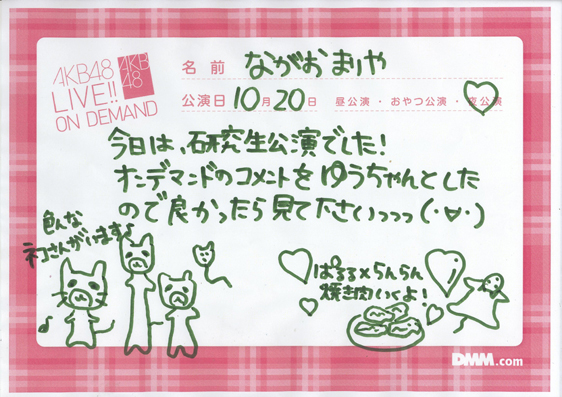 AKB48
LIVE!!
ON DEMAND
AKB
48
名前 ながお まりや
公演日 10月20日 昼公演・おやつ公演・夜公演
今日は、研究生公演でした!
オンデマンドのコメントをゆうちゃんとした
ので良かったら見て下さいっっっ(・∀・)
色んな
ネコさんがいます♪
ぱるる×らんらん
焼き肉いくよ!
♪
DMM.com